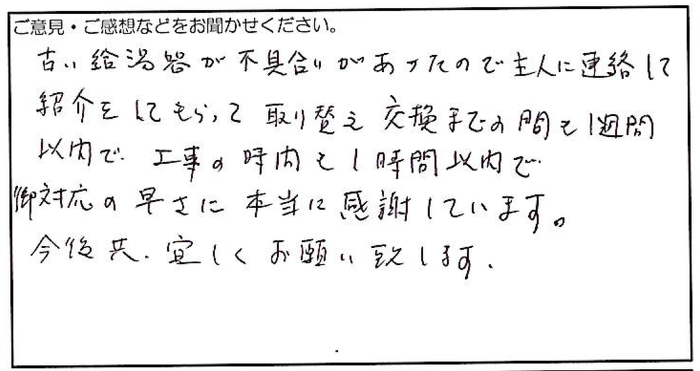 ご意見・ご感想などをお聞かせください。
古い給湯器が不具合いがあったので主人に連絡して
紹介をしてもらって取り替え交換までの間も1週間
以内で、工事の時間も1時間以内で
御対応の早さに本当に感謝しています。
今後共、宜しくお願い致します。